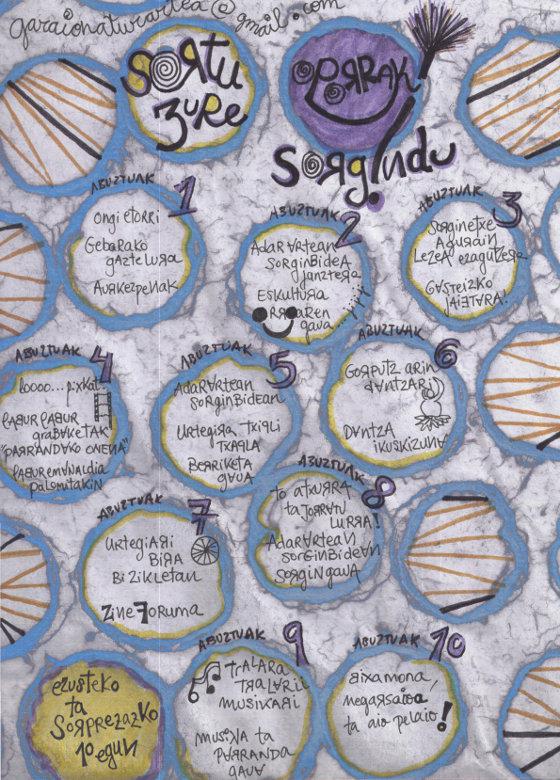 garaionaturartea@gmail.com
SORTU
ZURE
OPORRAK
SORgINdu
ABUZTUAK 1
ongi etorri
Gebarako
gaztelura
Aurkezpenak
ABUZTUAK 2
AdarArtean
sorginbidea
janztera
Eskultura
ORRAREN
gaua...jijiji
ABUZTUAK 3
Sorginetxe
Agurain
Lezea ezagutzera
Gasteizko
JAIETARA!
ABUZTUAK 4
loooo...pixkat
LABUR LABUR
grabaketak
"PARRANDAKO ONENA"
LABUREMANALDIA
palomitakin
ABUZTUAK 5
AdarArtean
sorginbidean
Urtegira txipli
txapla
Berriketa
gaua
ABUZTUAK 6
Gorputz arin
dantzari
Dantza
ikuskizuna
ABUZTUAK 7
Urtegiari
BIRA
Bizikletan
Zine Foruma
ABUZTUAK 8
to atxurra
ta jorratu
lurra!
AdarArtean
sorginbidean
sorgin gaua
ezusteko
ta
SORPREZAZKO
10 egun
ABUZTUAK 9
TRALARA
TRALARII
MUSIKARI
musika ta
PARRANDA
gaua
ABUZTUAK 10
aixamona,
negarsaioa
ta aio pelaio!